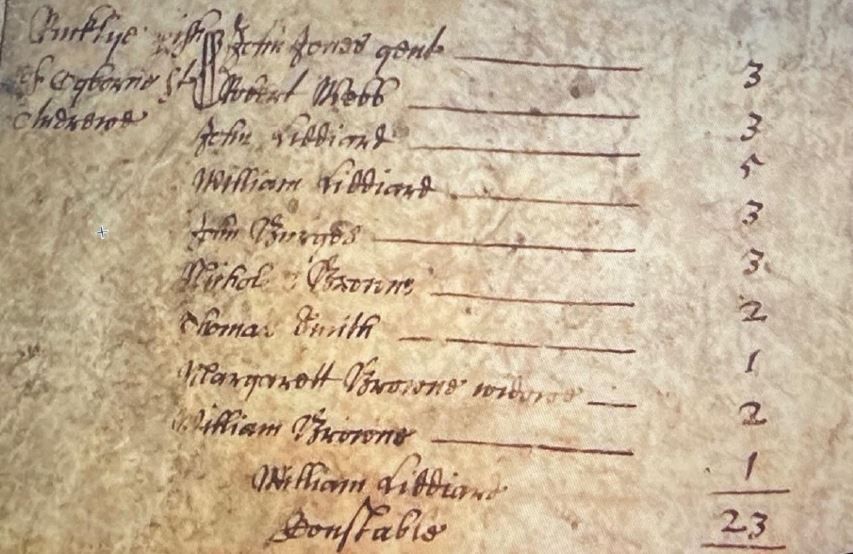 Rocklye with John Jones gent 3
of Ogborne St Robert Webb 3
Andrewe John Liddiard 5
William Liddiard 3
John Burges 3
Nichol Browne 2
Thomas Smith 1
Margarett Browne widowe 2
William Browne 1
William Liddiard
Constable 23